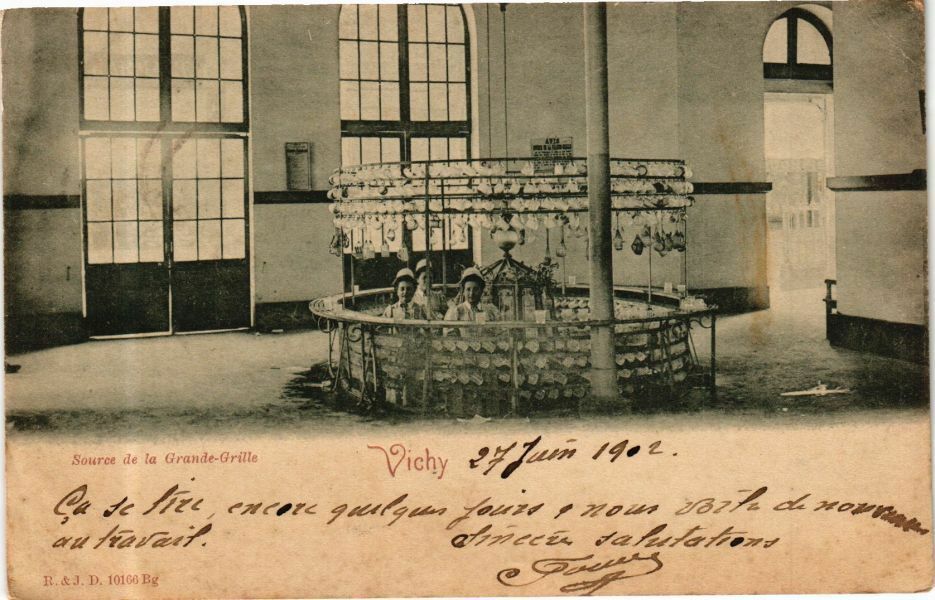 AVIS
Source de la Grande-Grille
Vichy
27 Juin 1902.
Ça se tire, encore quelques jours & nous voilà de nouveau
au travail.
Sincères salutations
R. & J. D. 10166 Bg